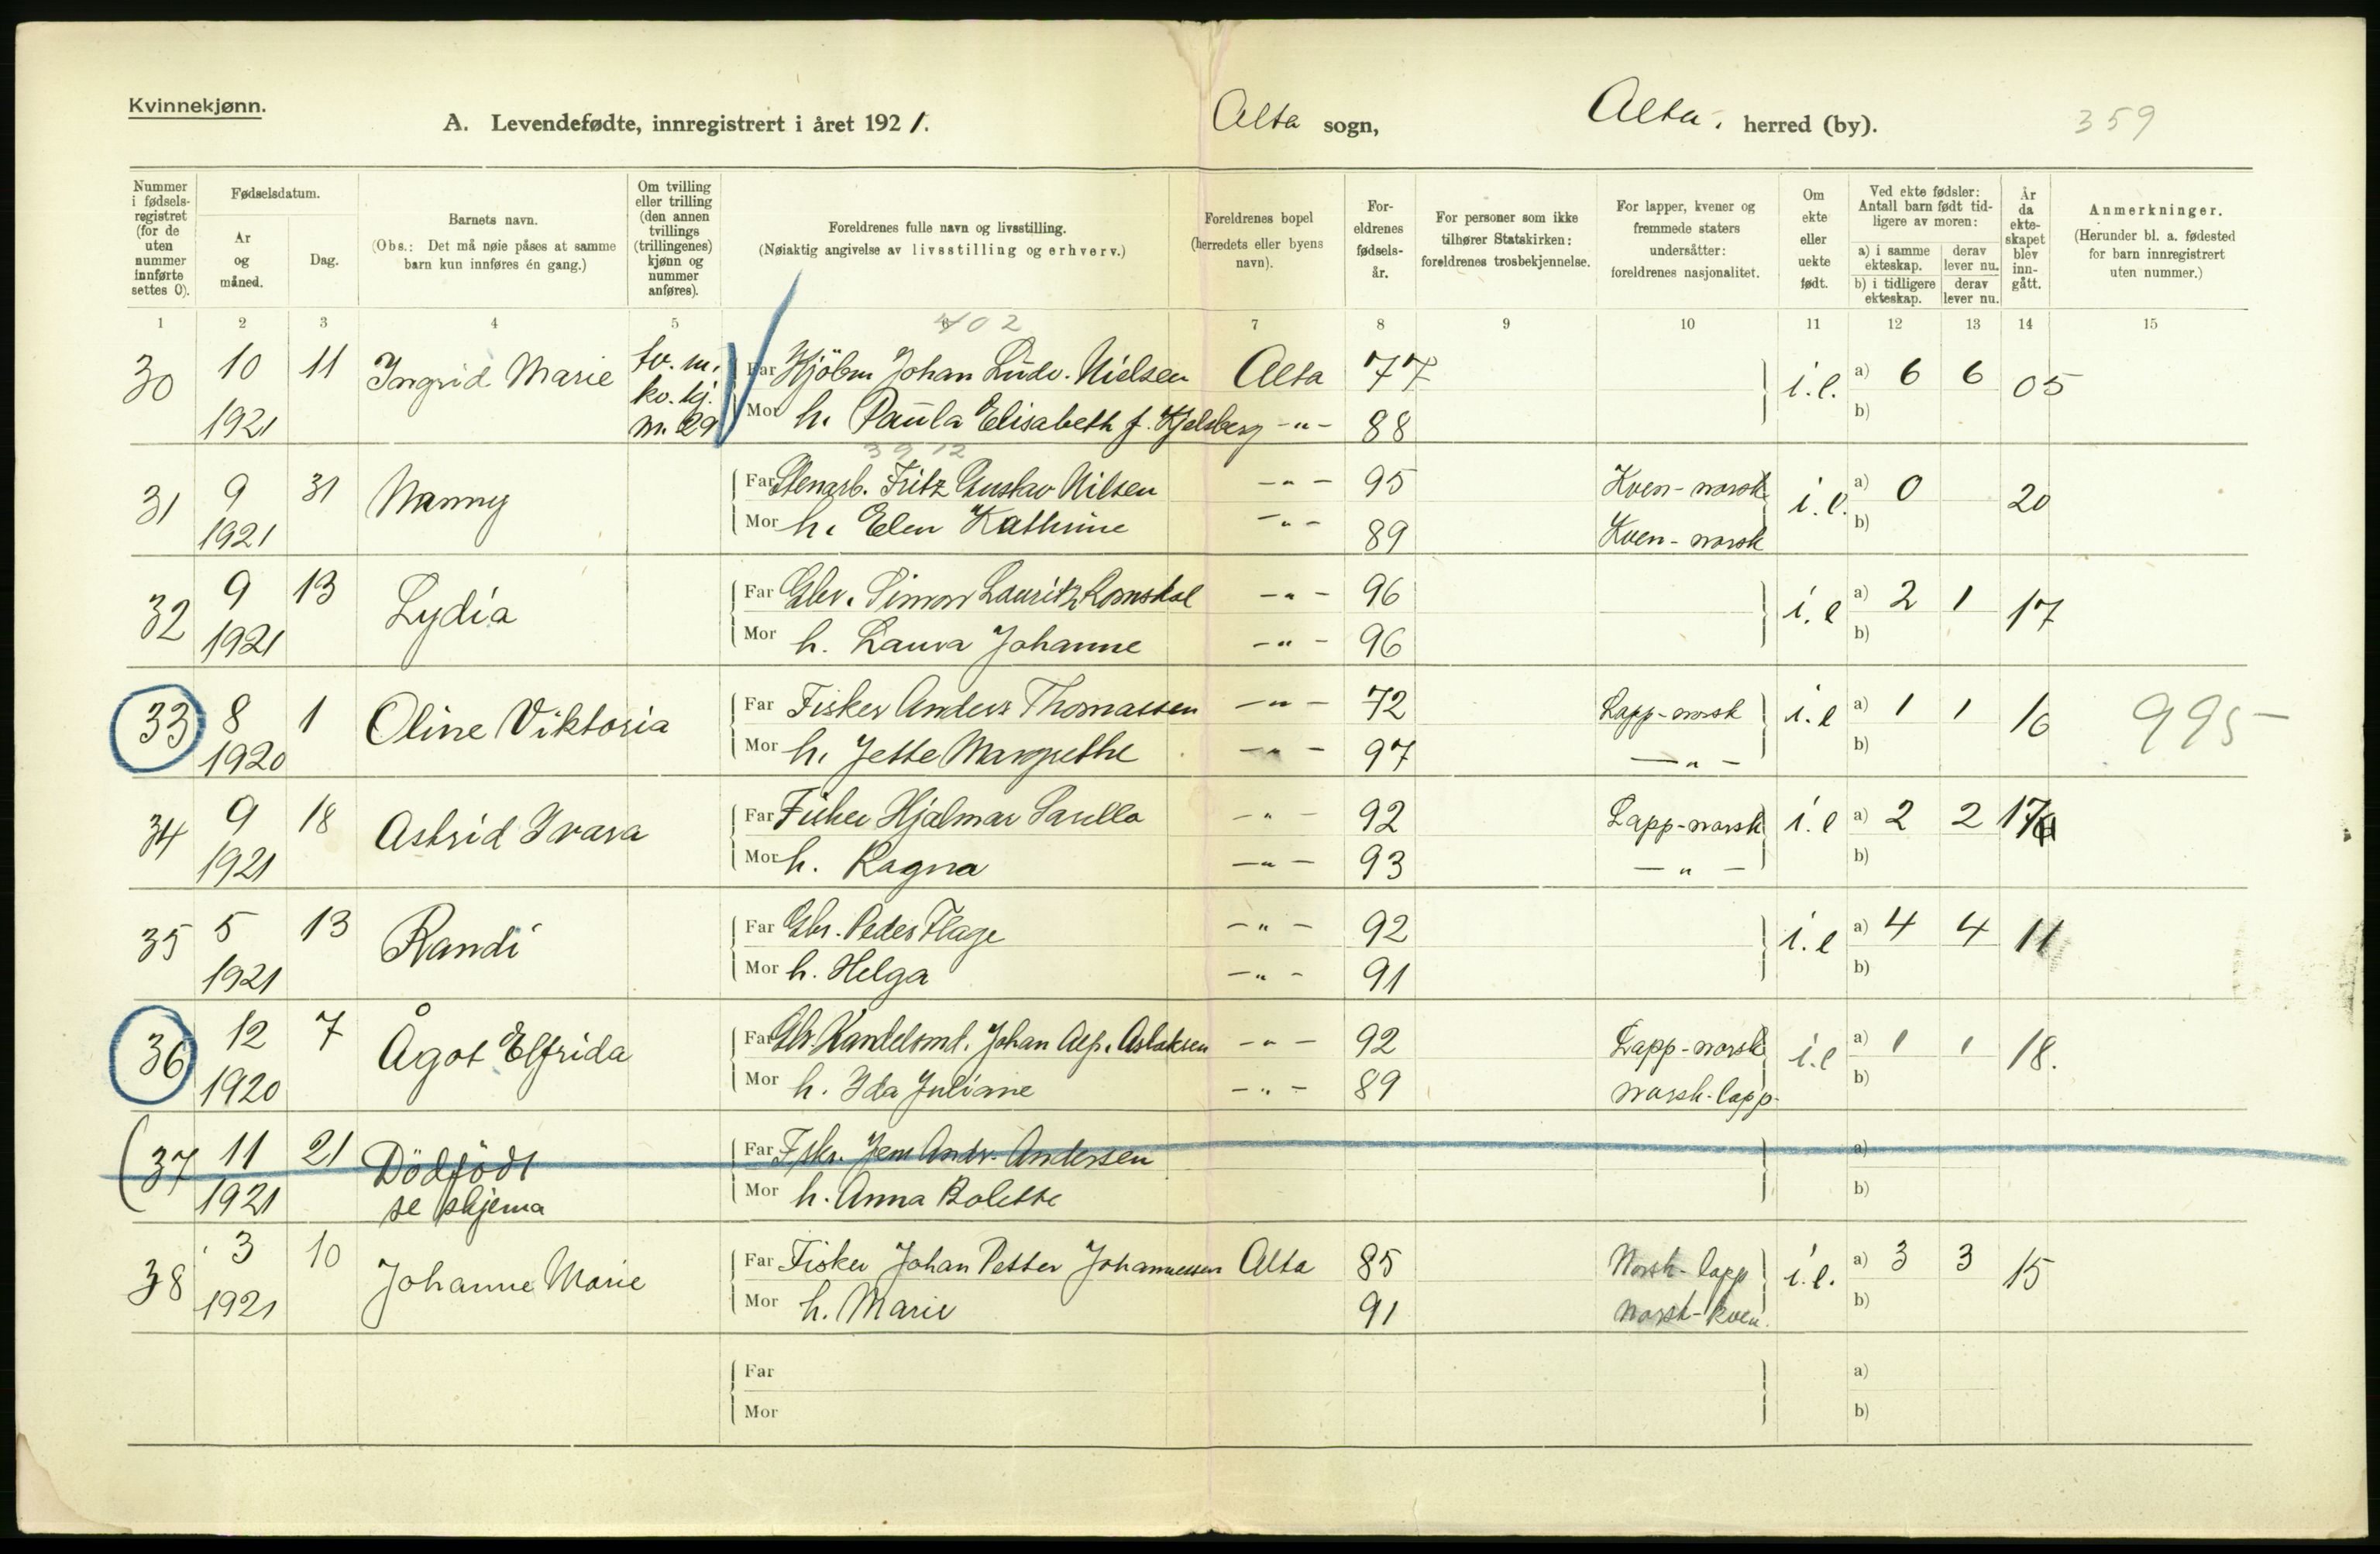 Kvinnekjønn.
A. Levendefødte, innregistrert i året 1921. Alta sogn, Alta, herred (by). 359
Nummer i fødsels-registret (for de uten nummer innførte settes 0).
Fødselsdatum.
År og måned.
Dag.
Barnets navn.
(Obs.: Det må nøie påses at samme barn kun innføres én gang.)
Om tvilling eller trilling (den annen tvillings (trillingenes) kjønn og nummer anføres).
Foreldrenes fulle navn og livsstilling.
(Nøiaktig angivelse av livsstilling og erhverv.)
Foreldrenes bopel (herredets eller byens navn).
For-eldrenes fødsels-år.
For personer som ikke tilhører Statskirken: foreldrenes trosbekjennelse.
For lapper, kvener og fremmede staters undersåtter: foreldrenes nasjonalitet.
Om ekte eller uekte født.
Ved ekte fødsler: Antall barn født tid-ligere av moren:
a) i samme ekteskap.
derav lever nu.
b) i tidligere ekteskap.
derav lever nu.
År da ekte-skapet blev inn-gått.
Anmerkninger.
(Herunder bl. a. fødested for barn innregistrert uten nummer.)
1 2 3 4 5 6 7 8 9 10 11 12 13 14 15
402
30 10 11 Ingrid Marie tv. m. Far Hjölm Johan Ludv. Nielsen Alta 77 i.e. a) 6 6 05
1921 kv. kj. m. 29 Mor h. Paula Elisabeth f. Kjelsberg -"- 88 b)
3912
31 9 31 Nanny Far Stenarb. Fritz Gustav Nilsen -"- 95 Kven-norsk i.e. a) 0 20
1921 Mor h. Elen Kathrine -"- 89 Kven-norsk b)
32 9 13 Lydia Far Gbr. Simon Lauritz Romsdal -"- 96 i.e a) 2 1 17
1921 Mor h. Laura Johanne -"- 96 b)
33 8 1 Oline Viktoria Far Fisker Anders Thomassen -"- 72 Lapp-norsk i.e a) 1 1 16 995-
1920 Mor h. Jette Margrethe -"- 97 -"- b)
34 9 18 Astrid Ivara Far Fisker Hjalmar Sarilla -"- 92 Lapp-norsk i.e a) 2 2 17
1921 Mor h. Ragna -"- 93 -"- b)
35 5 13 Randi Far Gbr. Peder Flage -"- 92 i.e a) 4 4 11
1921 Mor h. Helga -"- 91 b)
36 12 7 Ågot Elfrida Far Gbr. Handelsmd. Johan Alf. Aslaksen -"- 92 Lapp-norsk i.e a) 1 1 18.
1920 Mor h. Ida Juliane -"- 89 norsk-lapp- b)
(37 11 21 Dödfödt Far Fskr. Jens Andr. Andersen a)
1921 se skjema Mor h. Anna Bolette b)
38 3 10 Johanne Marie Far Fisker Johan Petter Johannessen Alta 85 Norsk-lapp i.e. a) 3 3 15
1921 Mor h. Marie 91 norsk-kven. b)
Far a)
Mor b)